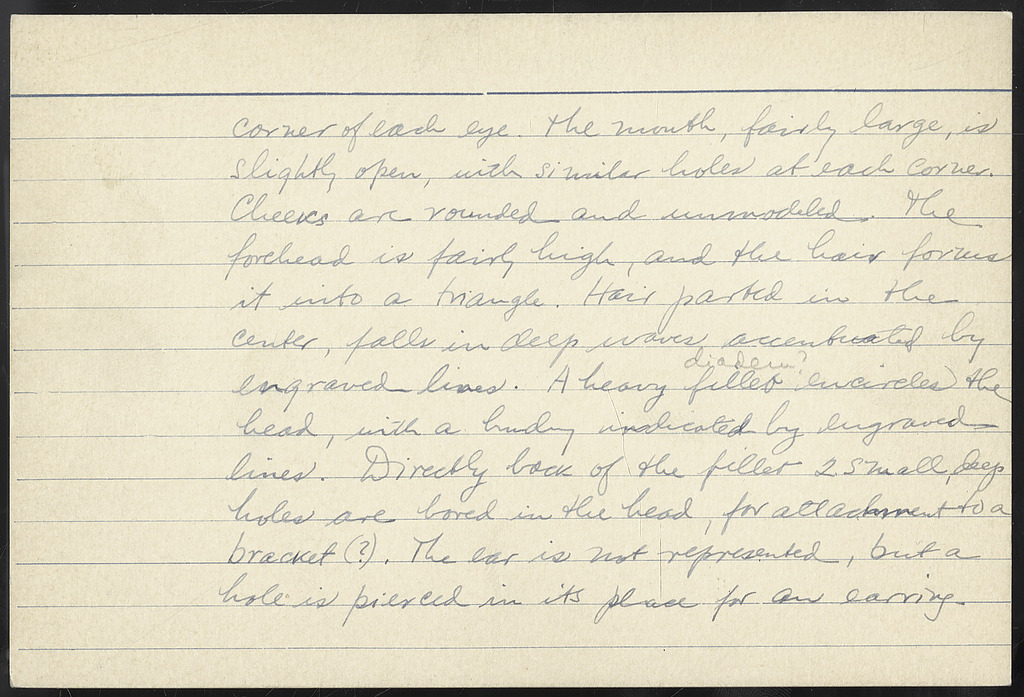 corner of each eye. The mouth, fairly large, is
slightly open, with similar holes at each corner.
Cheeks are rounded and unmodeled. The
forehead is fairly high, and the hair forms
it into a triangle. Hair parted in the
center, falls in deep waves, accentuated by
diadem?
engraved lines. A heavy fillet encircles the
head, with a indicated by engraved
lines. Directly back of the fillet 2 small, deep
holes are bored in the head, for attachment to a
bracket (?). The ear is not represented, but a
hole is pierced in its place for an earring